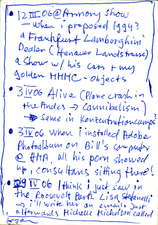 12 III 06 @ Armory Show
when i proposed 1994?
a Frankfurt Lamborghini
Dealer (Hanauer Landstrasse)
a show w/ his cars + my
golden MHMC-objects
3 IV 06 Alive (Plane crash in
the Andes → Cannibalism)
→ same in Konzentrationcamps?
3 IV 06 When i installed Adobe
Photoalbum on Bill's computer
@ FMA, all his porn showed
up, consultans sitting there!
29 IV 06 I think i just saw in
the Roosevelt Hotel Lisa
→ i'll write her an email: just
afterwards Michelle Nicholson called